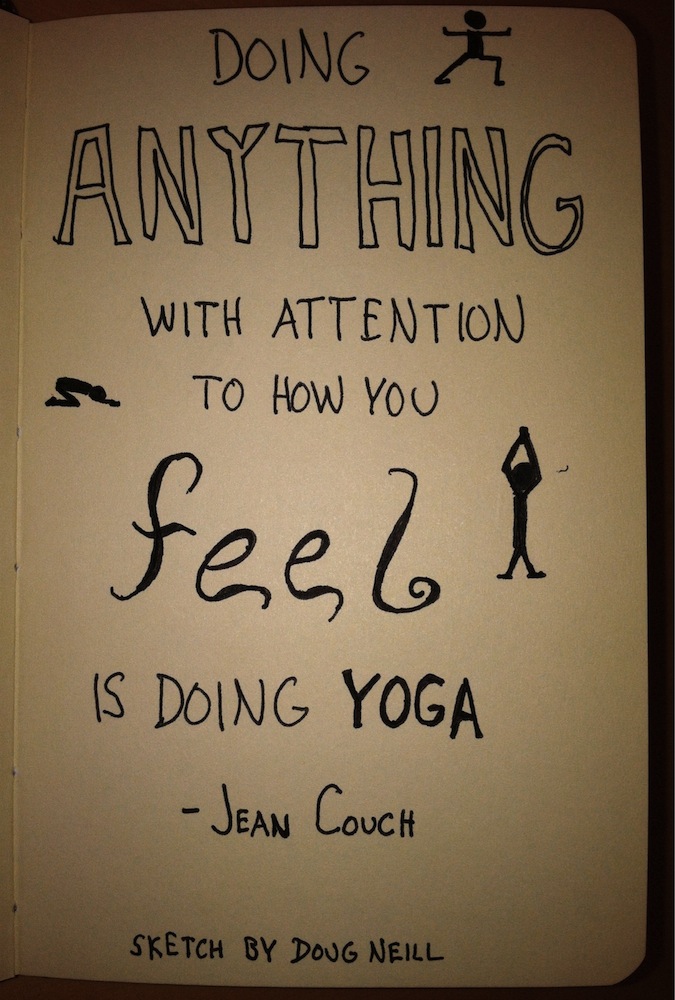 DOING
ANYTHING
WITH ATTENTION
TO HOW YOU
feel
IS DOING YOGA
- JEAN COUCH
SKETCH BY DOUG NEILL